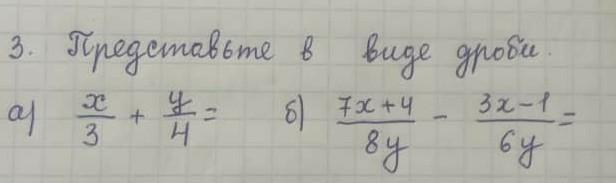 3. Представьте в виде дроби.
а) x/3 + y/4 = б) (7x+4)/(8y) - (3x-1)/(6y) =